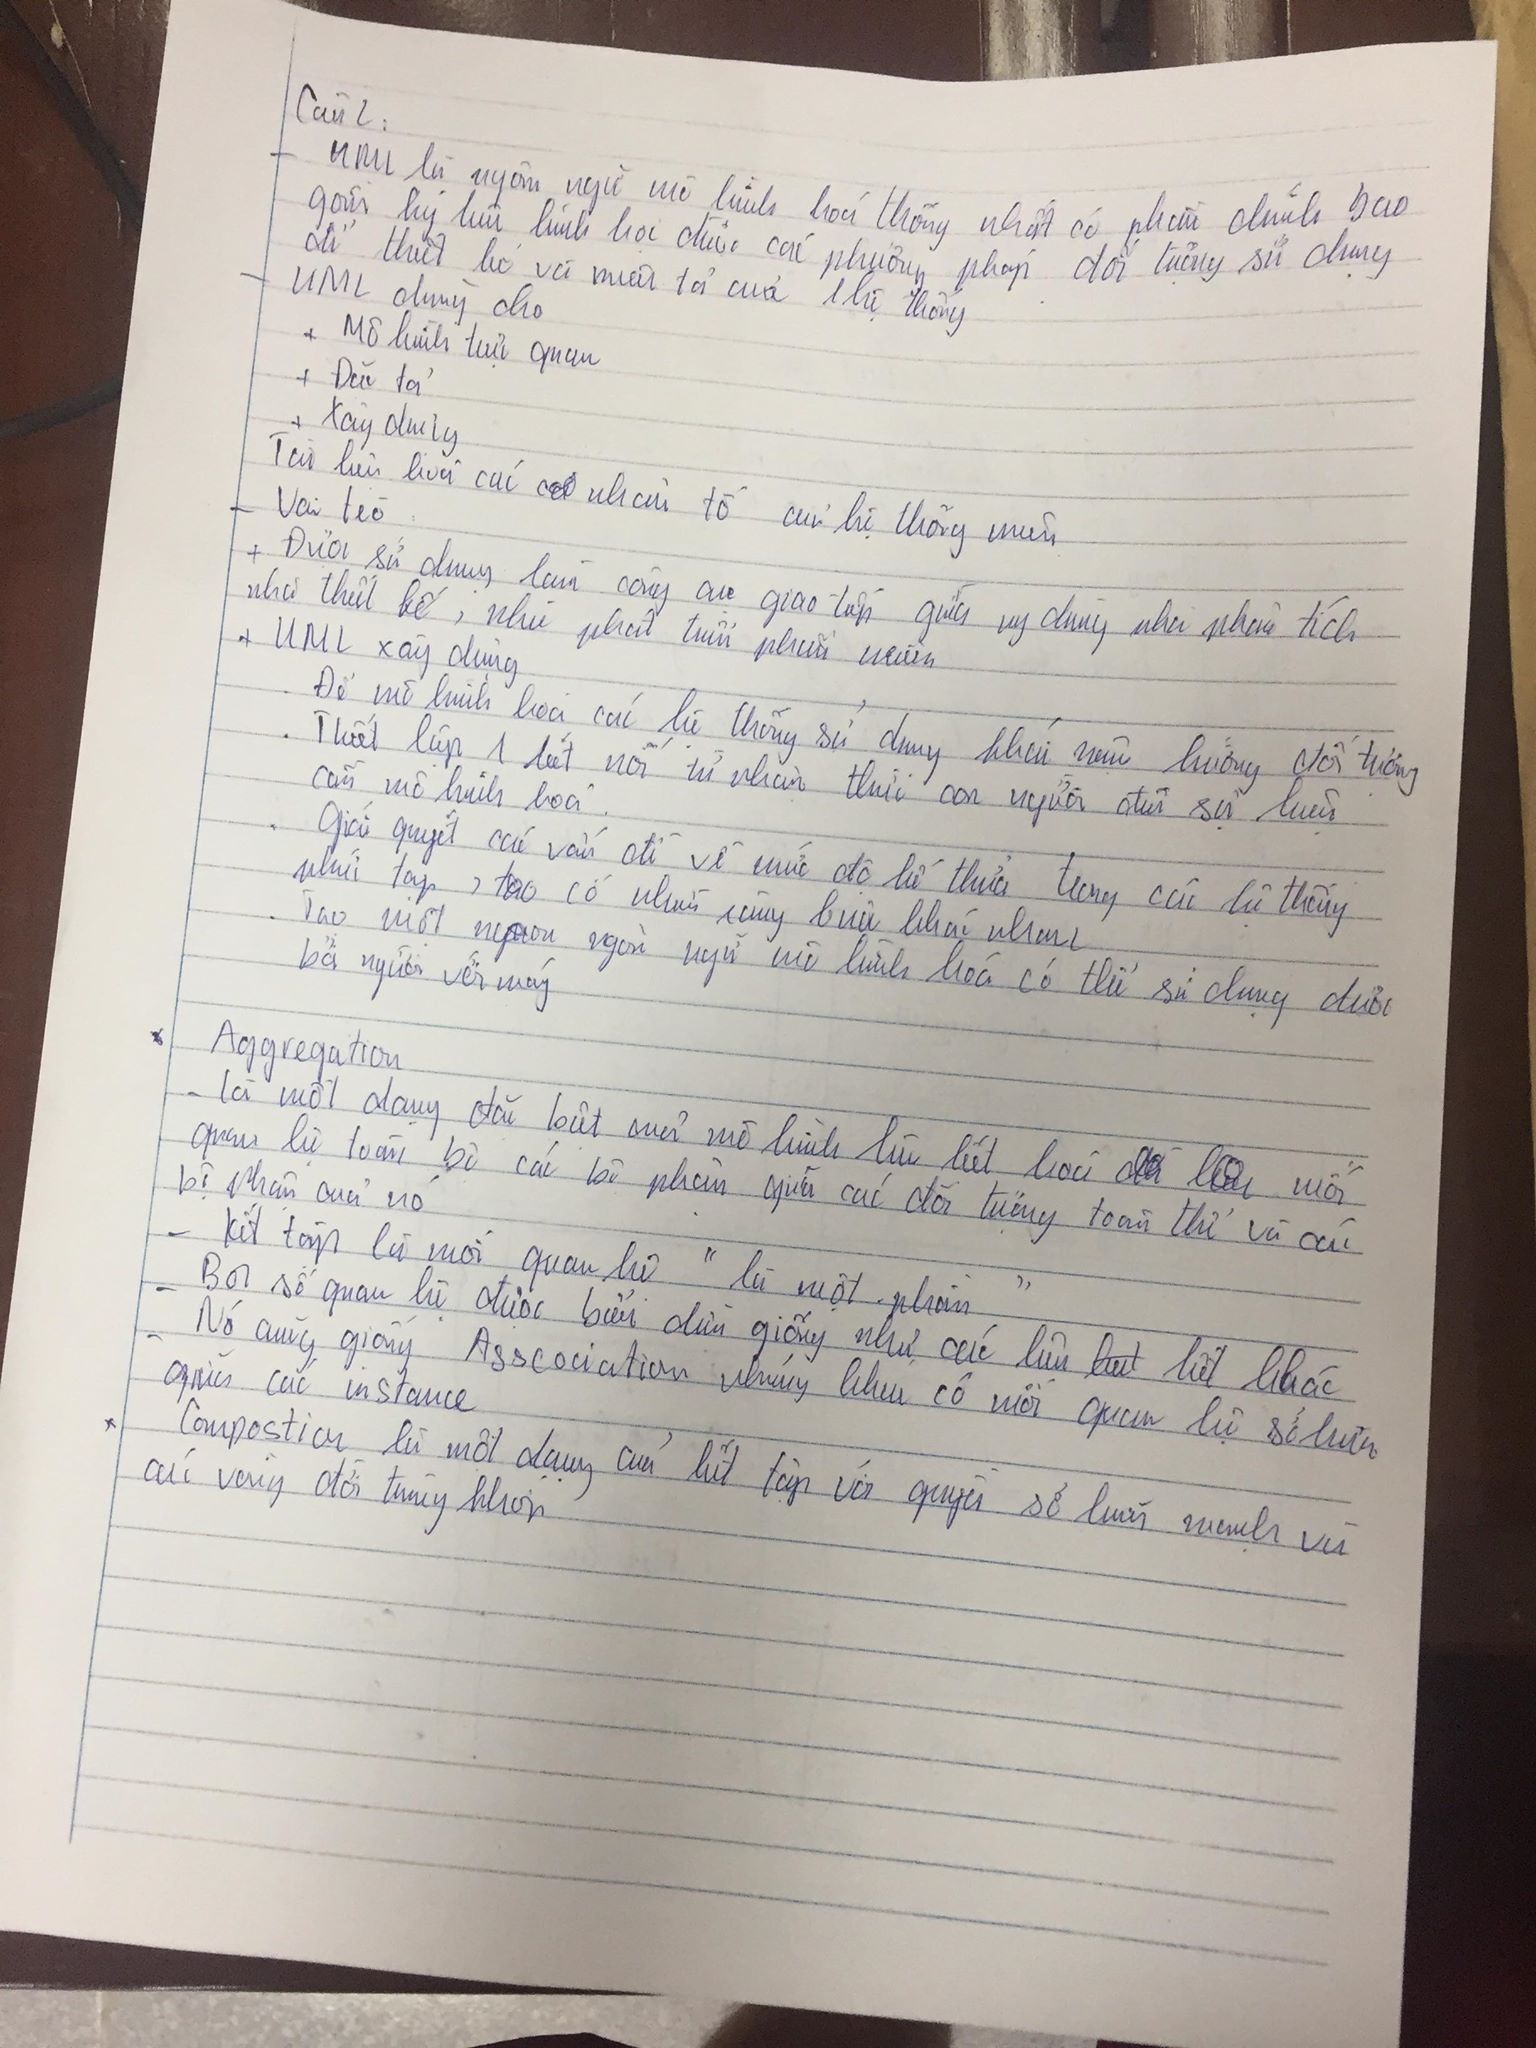 Câu 2:
- UML là ngôn ngữ mô hình hoá thống nhất có phần chính bao
gồm ký hiệu hình học được các phương pháp đối tượng sử dụng
để thiết kế và miêu tả của 1 hệ thống
- UML dùng cho
+ Mô hình trực quan
+ Đặc tả
+ Xây dựng
Tài liệu hoá các nhân tố của hệ thống mềm
- Vai trò
+ Được sử dụng làm công cụ giao tiếp giữa ng dùng nhà phân tích
nhà thiết kế, nhà phát triển phần mềm
+ UML xây dựng
. Để mô hình hoá các hệ thống sử dụng khái niệm hướng đối tượng
. Thiết lập 1 kết nối từ nhận thức con người đến sự kiện
cần mô hình hoá.
. Giải quyết các vấn đề về mức độ kế thừa trong các hệ thống
phức tạp, có nhiều ràng buộc khác nhau
. Tạo một ngôn ngữ mô hình hoá có thể sử dụng được
bởi người với máy
* Aggregation
- Là một dạng đặc biệt của mô hình liên kết hoá mối
quan hệ toàn bộ các bộ phận giữa các đối tượng toàn thể và các
bộ phận của nó
- Kết tập là mối quan hệ " là một phần "
- Bội số quan hệ được biểu diễn giống như các liên kết khác
- Nó cũng giống Asscociation nhưng khác có mối quan hệ sở hữu
giữa các instance
* Compostion là một dạng của kết tập với quyền sở hữu mạnh và
các vòng đời trùng khớp